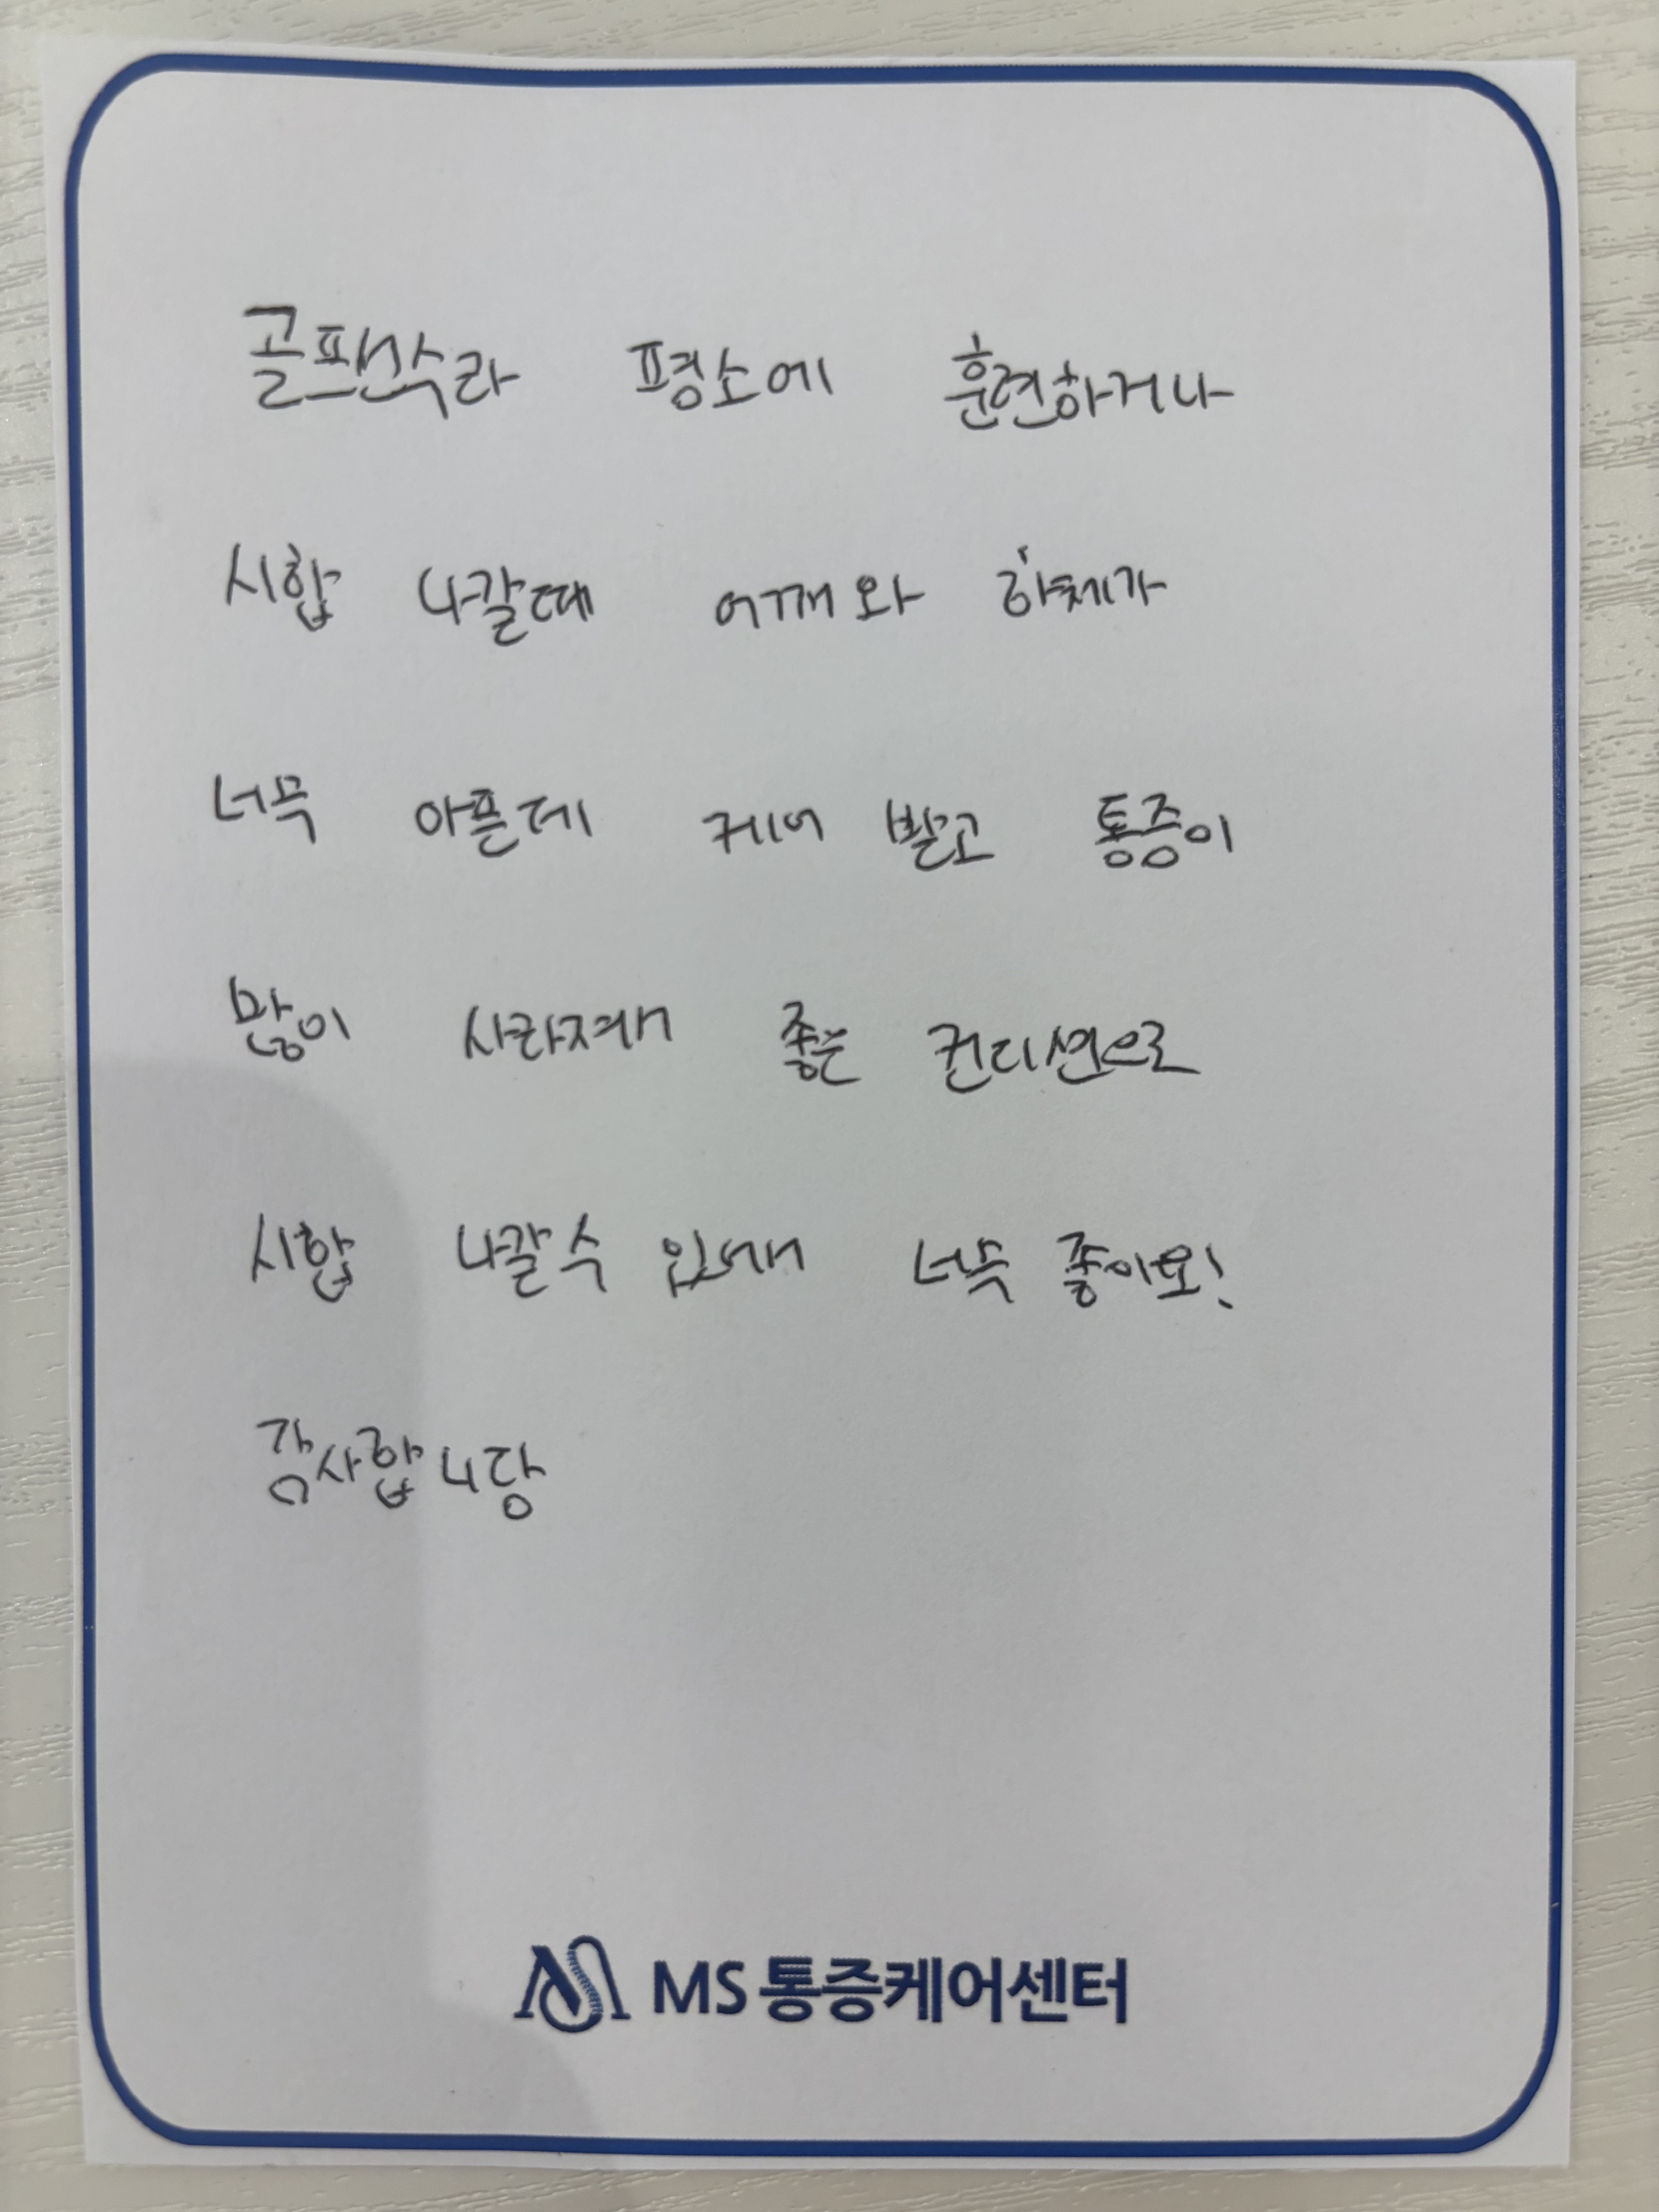 골프선수라 평소에 훈련하거나
시합 나갈때 어깨와 하체가
너무 아픈데 케어 받고 통증이
많이 사라져서 좋은 컨디션으로
시합 나갈 수 있어서 너무 좋아요!
감사합니당
MS 통증케어센터